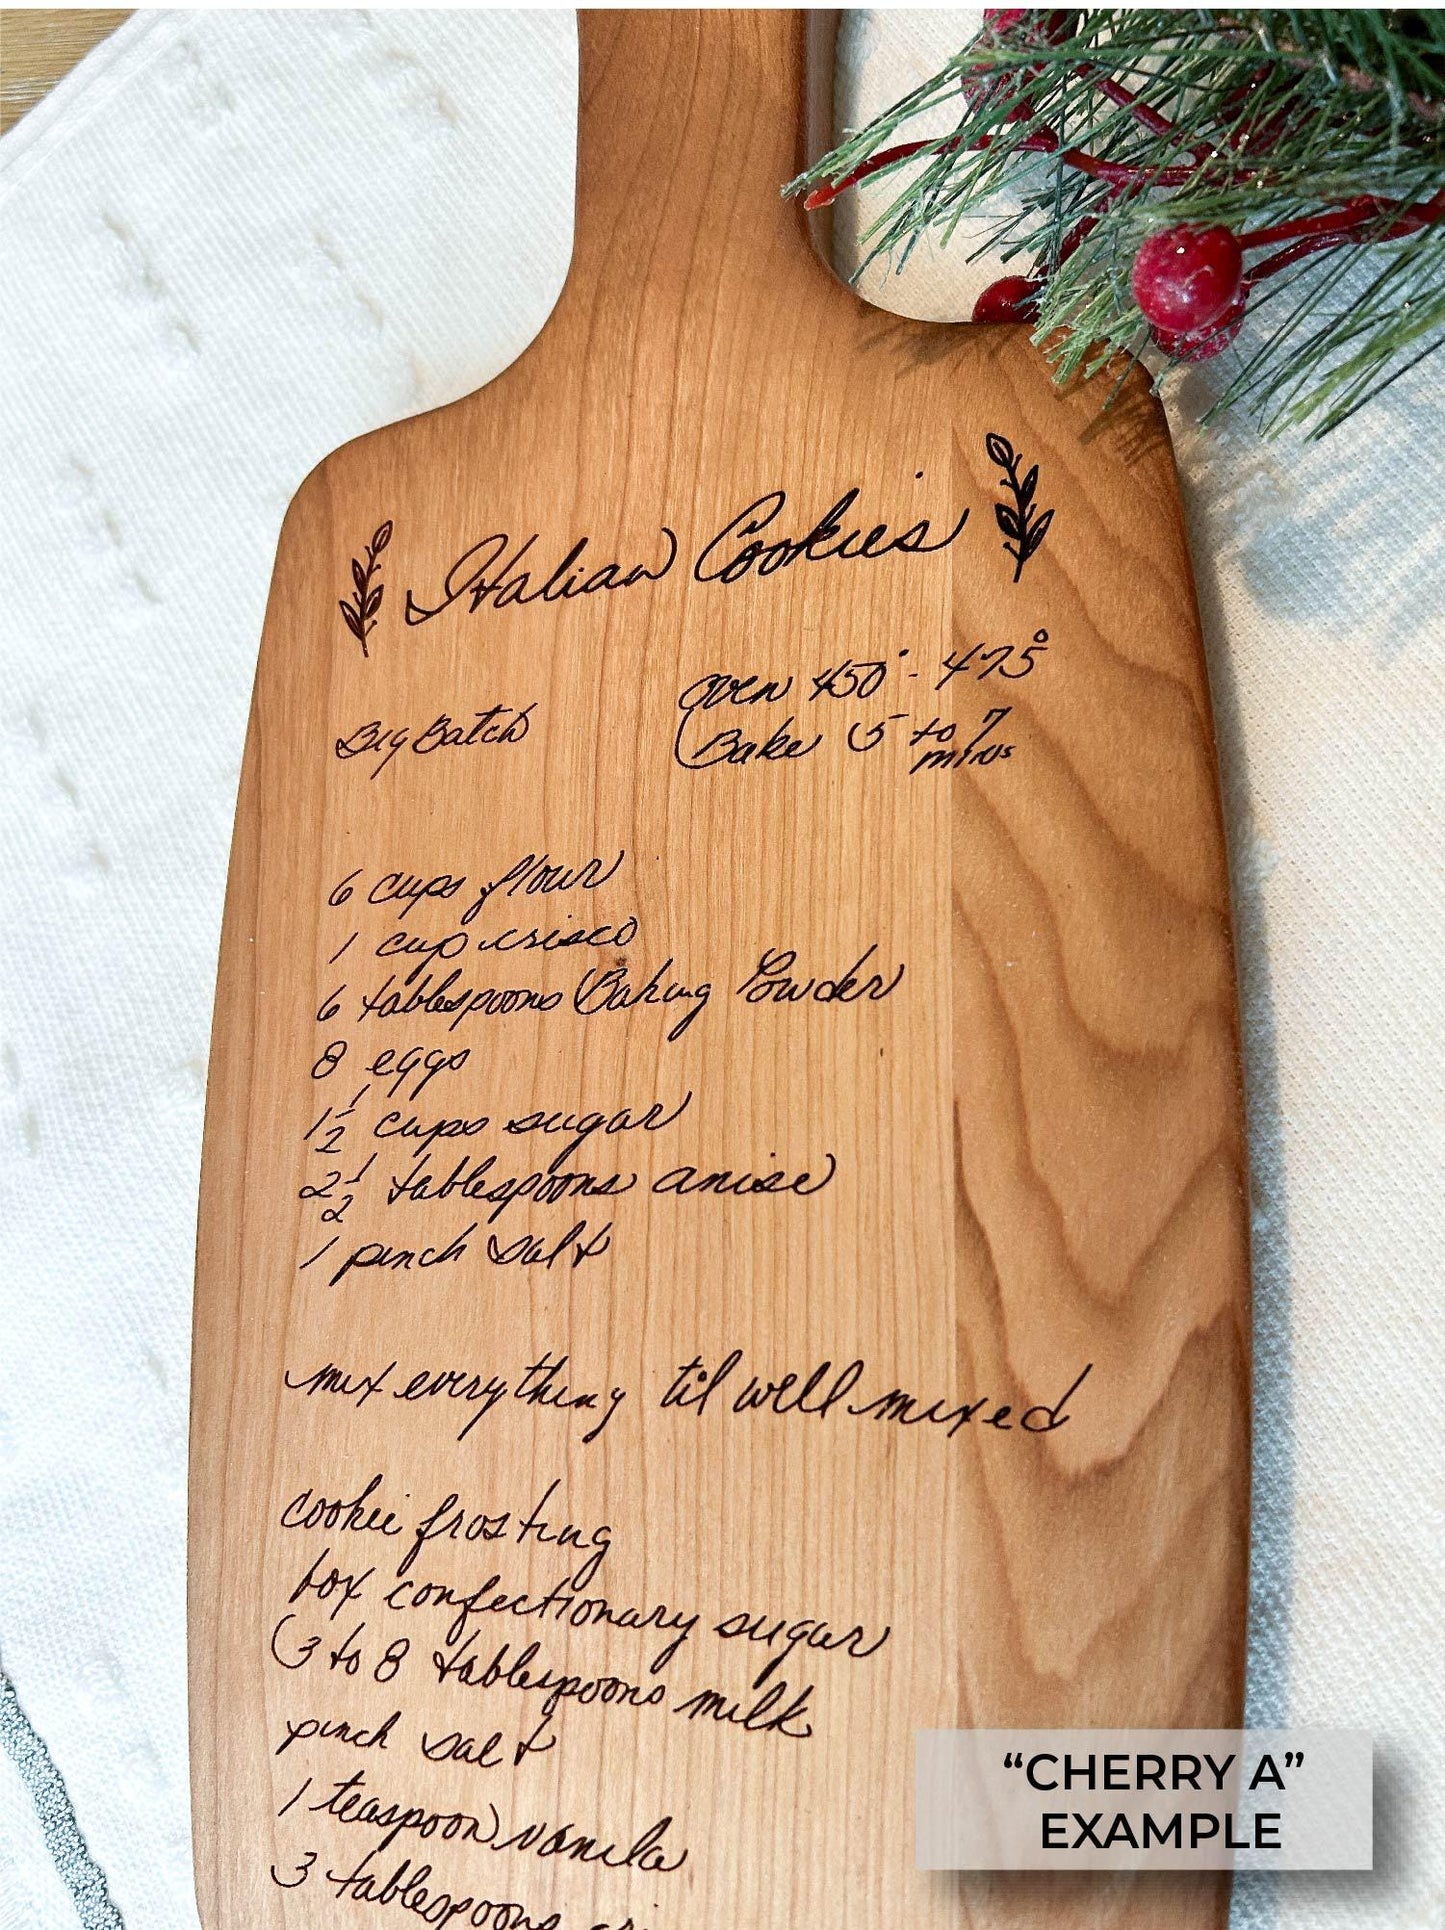 Italian Cookies
oven 450° - 475°
Big Batch
Bake 5 to 7
minus
6 cups flour
1 cup crisco
6 tablespoons Baking Powder
8 eggs
1 1/2 cups sugar
2 1/2 tablespoons anise
1 pinch salt
mix everything til well mixed
cookie frosting
box confectionary sugar
(3 to 8 tablespoons milk
pinch salt
1 teaspoon vanila
3 tablespoons
“CHERRY A”
EXAMPLE